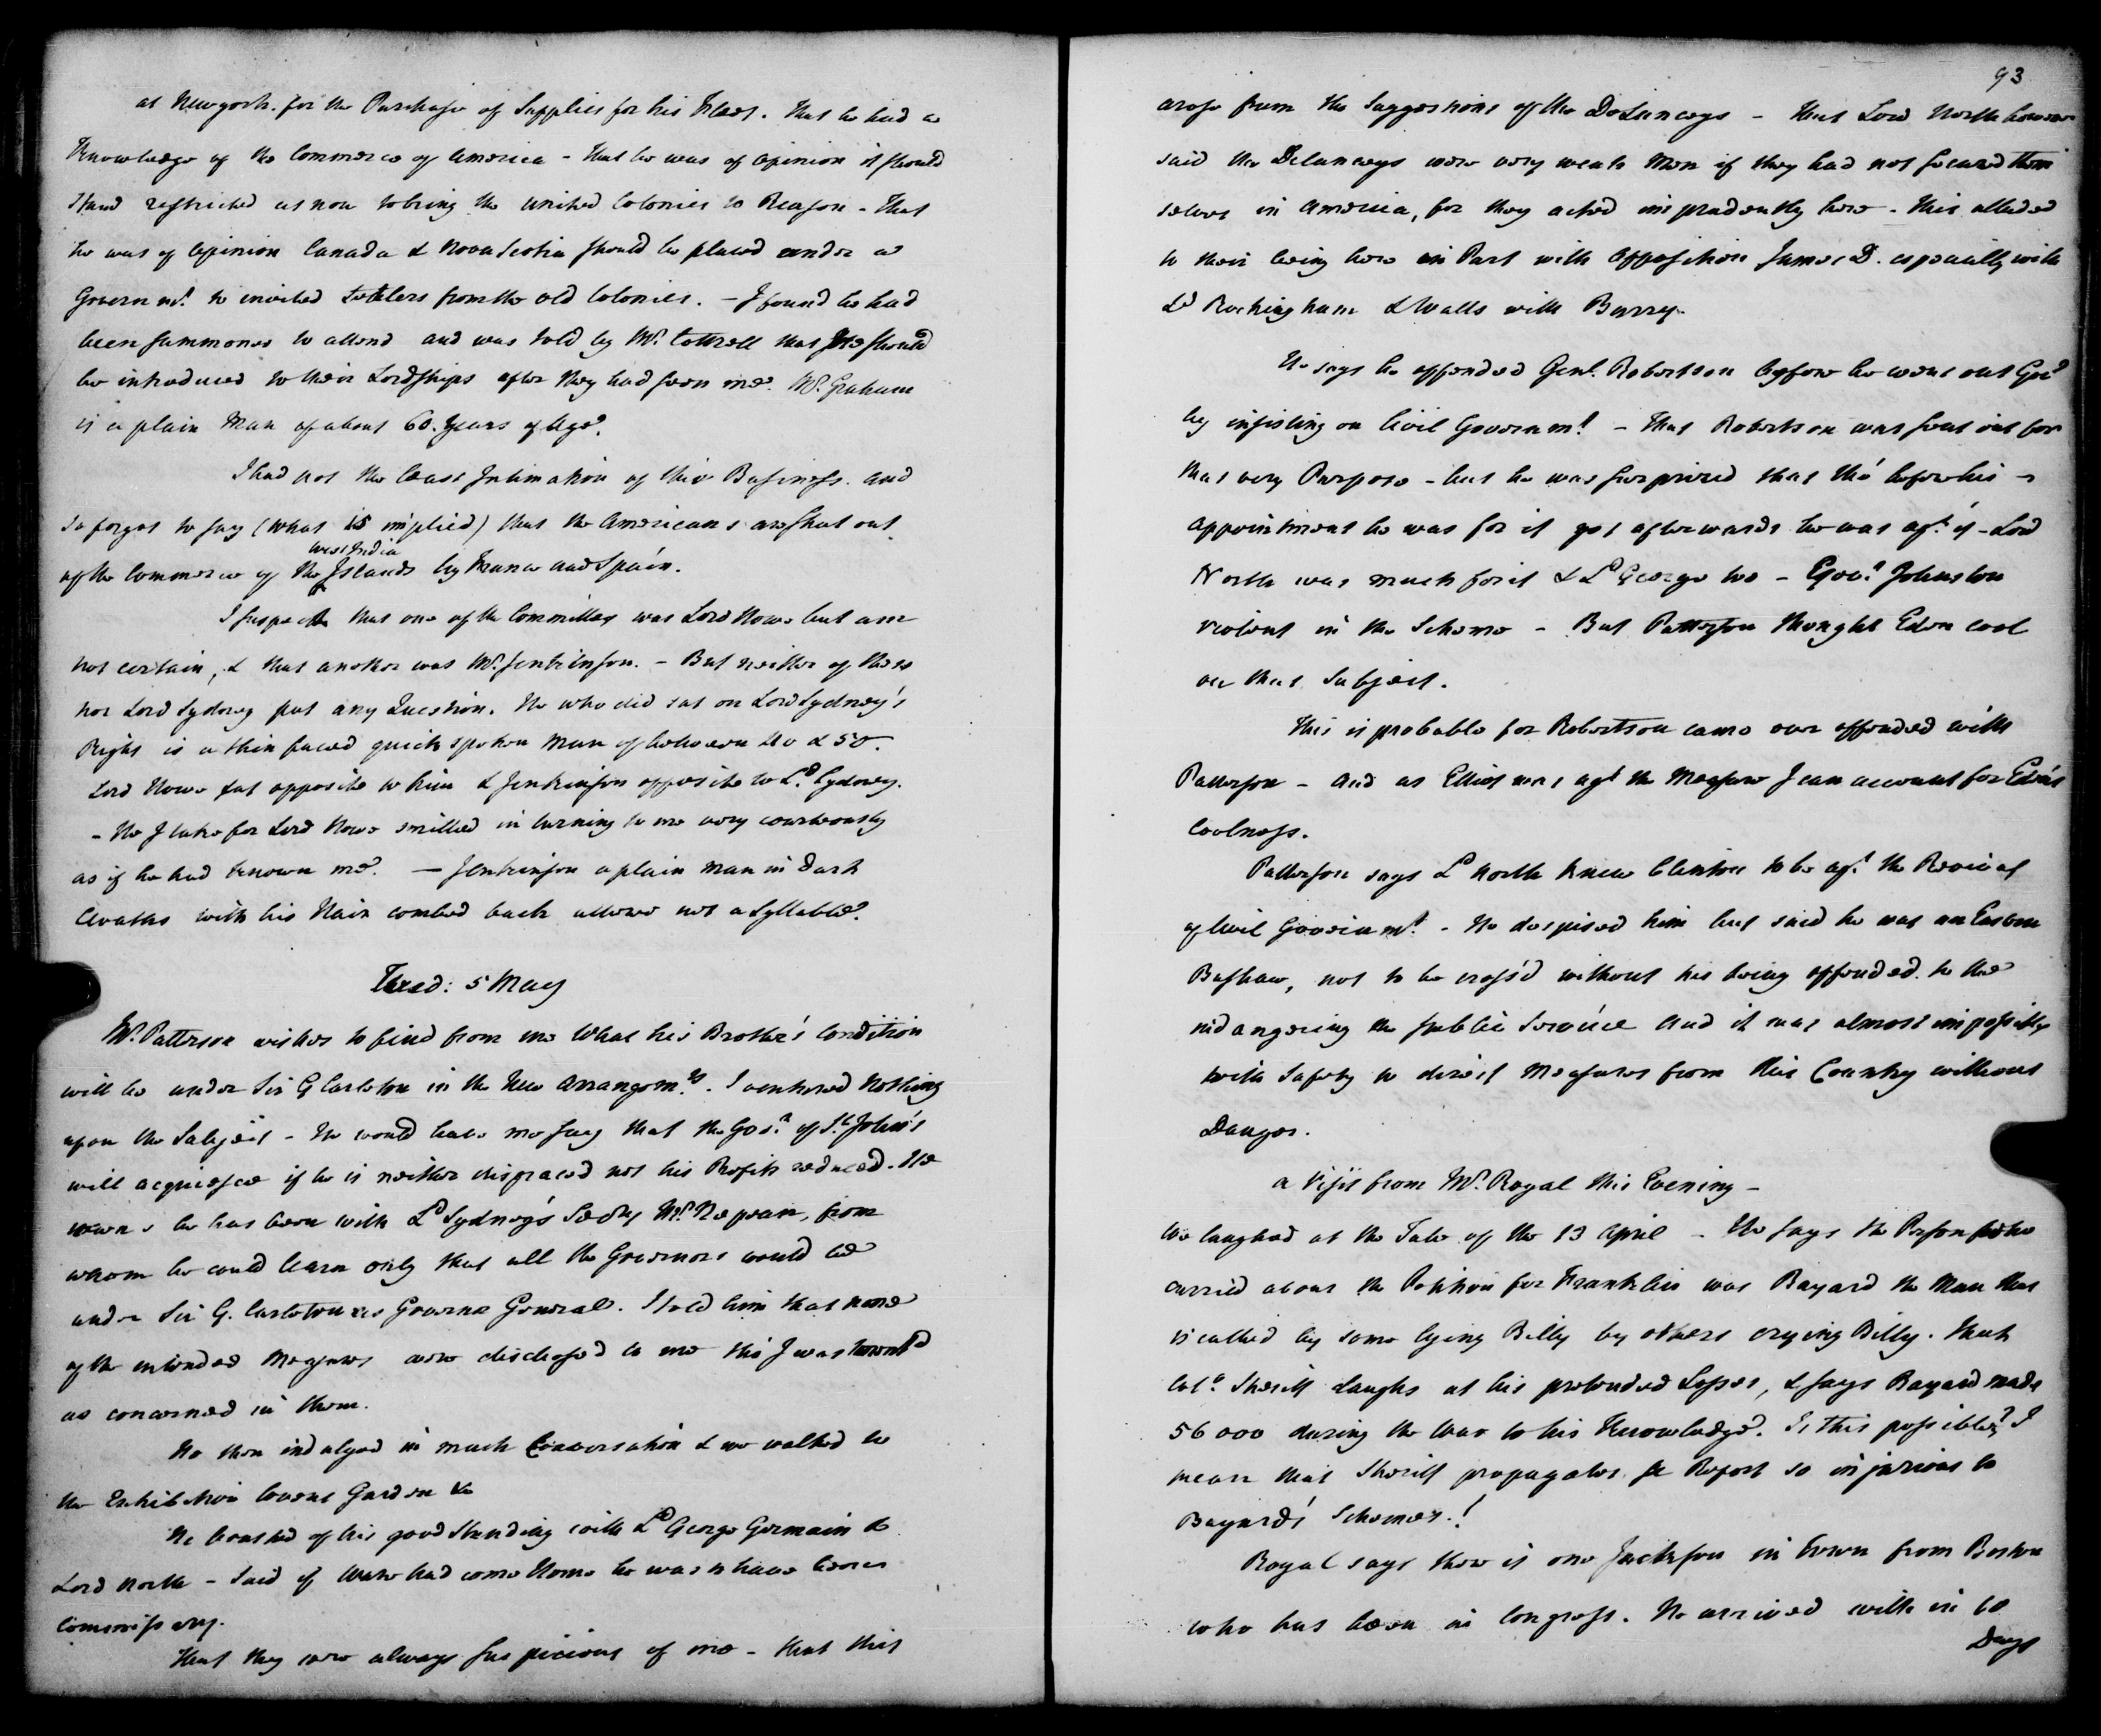 at Newyork. for the Purchase of Supplies for his Fleet. that he had a
Knowledge of the Commerce of America - that he was of Opinion it should
stand restricted as now to bring the united Colonies to Reason - That
he was of Opinion Canada & Nova Scotia should be placed under a
Governmt. to invited Settlers from the old Colonies. - I found he had
been summoned to attend and was told by Mr. Cottrell that He should
be introduced to their Lordships after they had seen me. Mr. Graham
is a plain Man of about 60. Years of Age.
I had not the least Intimation of this Business. and
so forgot to say (what is implied) that the Americans are shut out
West India
of the Commerce of the Islands by France and Spain.
I suspect that one of the Committee was Lord Howe but am
not certain, & that another was Mr. Jenkinson. - But neither of these
nor Lord Sydney put any Question. He who did sat on Lord Sydney's
Right is a thin faced quick spoken Man of between 40 & 50.
Lord Howe sat opposite to him & Jenkinson opposite to Ld. Sydney.
- He I take for Lord Howe smilled in turning to me very courteously
as if he had known me. - Jenkinson a plain man in Dark
Cloaths with his Hair combed back uttered not a Syllable.
Wed: 5 May
Mr. Patterson wishes to find from me What his Brother's Condition
will be under Sir G Carleton in the New Arrangemts. I ventured Nothing
upon the Subject - He would have me say that the Govr. of St. John's
will acquiesce if he is neither disgraced nor his Profits reduced. He
owns he has been with Ld Sydney's Secry Mr. Nepean, from
whom he could learn only that all the Governors would be
under Sir G. Carleton as Governor General. I told him that none
of the intended Measures were disclosed to me tho' I was
as concerned in them.
He then indulged in much Conversation & we walked to
the Exhibition Covent Garden &c
He boasted of his good Standing with Ld George Germain &
Lord North - Said if had come Home he was to have been
Commissary.
That they were always suspicious of me - that this
93
arose from the Suggestions of the DeLanceys - that Lord North however
said the Delanceys were very weak Men if they had not secured them
selves in America, for they acted imprudently here - this alluded
to their being here in Part with Opposition James D. especially with
Ld Rockingham & Watts with Barry.
He says he offended Genl. Robertson before he went out Govr
by insisting on Civil Governmt. - That Robertson was sent out for
that very Purpose - but he was surprized that tho' before his
appointment he was for it yet afterwards he was agt. it - Lord
North was much for it & Ld George too - Govr. Johnston
violent in the Scheme - But Patterson thought Eden cool
on that Subject.
This is probable for Robertson came over offended with
Patterson - And as Elliot was agt the Measure I can account for Eden's
Coolness.
Patterson says Ld North knew Clinton to be agt. the Revival
of Civil Governmt. - He despised him but said he was an Eastern
Bashaw, not to be cross'd without his being offended to the
indangering the publie Service And it was almost impossible
with Safety to direct Measures from this Country without
Danger.
A Visit from Mr. Royal this Evening -
We laughed at the Tale of the 13 April - He says the Person who
carried about the Petition for Franklin was Bayard the Man that
is called by some lying Billy by others crying Billy. that
Colo. Sherriff Laughs at his pretended Losses, & says Bayard made
56 000 during the War to his Knowledge. Is this possible? I
mean that Sherriff propagates a Report so injurious to
Bayard's Schemes.!
Royal says there is one Jackson in Town from Boston
who has been in Congress. He arrived with in 10
Days